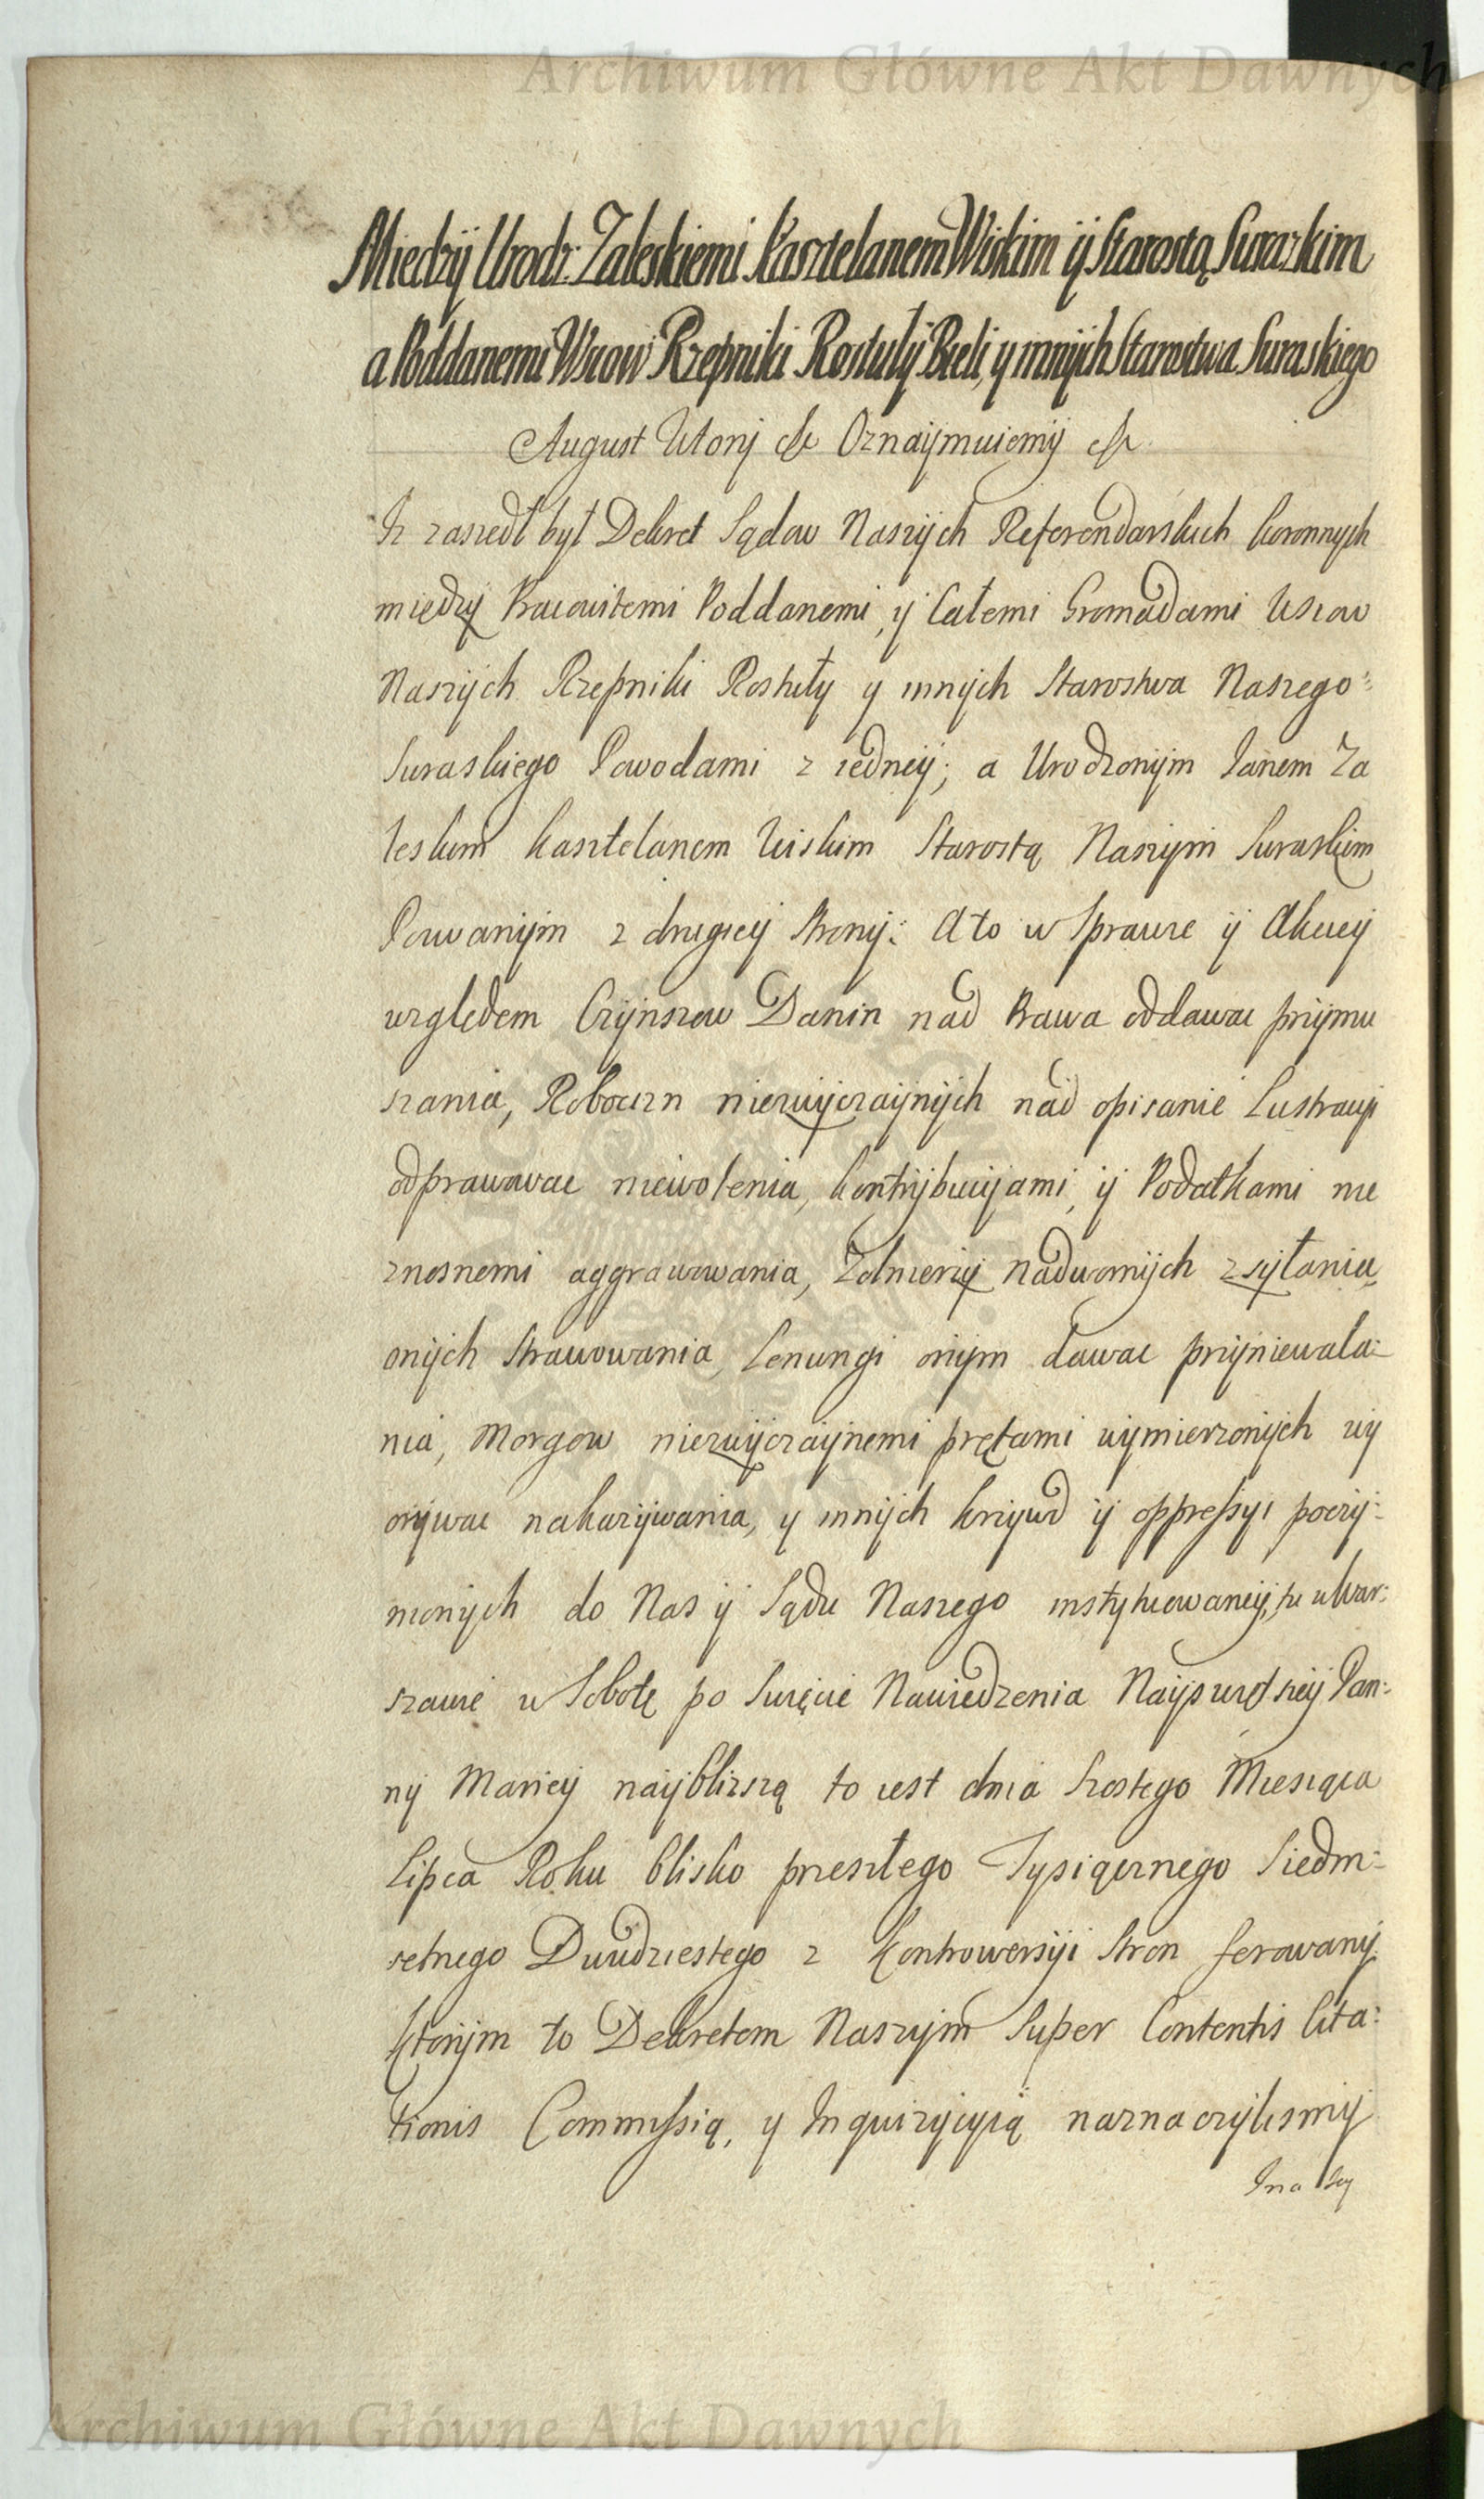 Archiwum Główne Akt Dawnych
Miedzÿ Urodz: Zaleskiemi Kasztelanem Wiskim ÿ Starostą Surazkim
a Poddanemi Wsiow Rzepniki Rostułÿ Bieli, y innÿch Starostwa Suraskiego
August Wtorÿ &c Oznaÿmuiemÿ &c
Iz zaszedł był Dekret Sądow Naszÿch Referendarskich koronnych
między Pracowitemi Poddanemi, ÿ Całemi Gromadami Wsiow
Naszÿch Rzepniki Rostułÿ y innÿch Starostwa Naszego
Suraskiego Powodami z iedneÿ; a Urodzonÿm Janem Za
leskim kasztelanem Wiskim Starostą Naszÿm Suraskim
Pozwanÿm z drugieÿ stronÿ: A to w Sprawie ÿ Akcieÿ
wzglėdem Czÿnszow Danin nad Prawa oddawac przÿmu
szania, Robocizn niezwÿczaÿnÿch nad opisanie Lustracÿi
odprawowac niewolenia, kontrÿbucÿjami, ÿ Podatkami nie
znosnemi aggrawowania, Zołnierzÿ Nadwornÿch zsÿłania,
onÿch Strawowania, Lenungi onÿm dawac przÿniewala:
nia, Morgow niezwÿczaÿnemi prętami wÿmierzonÿch wÿ
orÿwac nakazÿwania, y innÿch krzÿwd ÿ oppressÿi poczÿ:
nionÿch do Nas ÿ Sądu Naszego instÿtuowaneÿ, tu w War:
szawie w Sobotę po Swięcie Nawiedzenia Naÿswiętszeÿ Pan:
nÿ Marieÿ naÿblizszą to iest dnia Szostego Miesiąca
Lipca Roku blisko przeszłego Tysiącznego Siedm:
setnego Dwudziestego z kontrowersÿi Stron ferowanÿ.
ktorÿm to Dekretem Naszÿm Super Contentis Cita:
tionis Commissią, y Inquizÿcÿią naznaczÿlismÿ
Archiwum Główne Akt Dawnych